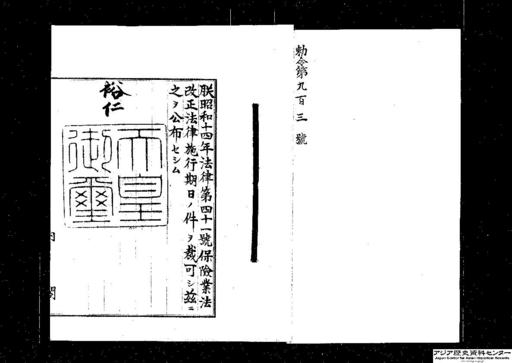 勅令第九百三號
朕昭和十四年法律第四十一號保險業法
改正法律施行期日ノ件ヲ裁可シ茲ニ
之ヲ公布セシム
裕仁
天皇
御璽
内閣
アジア歴史資料センター
Japan Center for Asian Historical Records